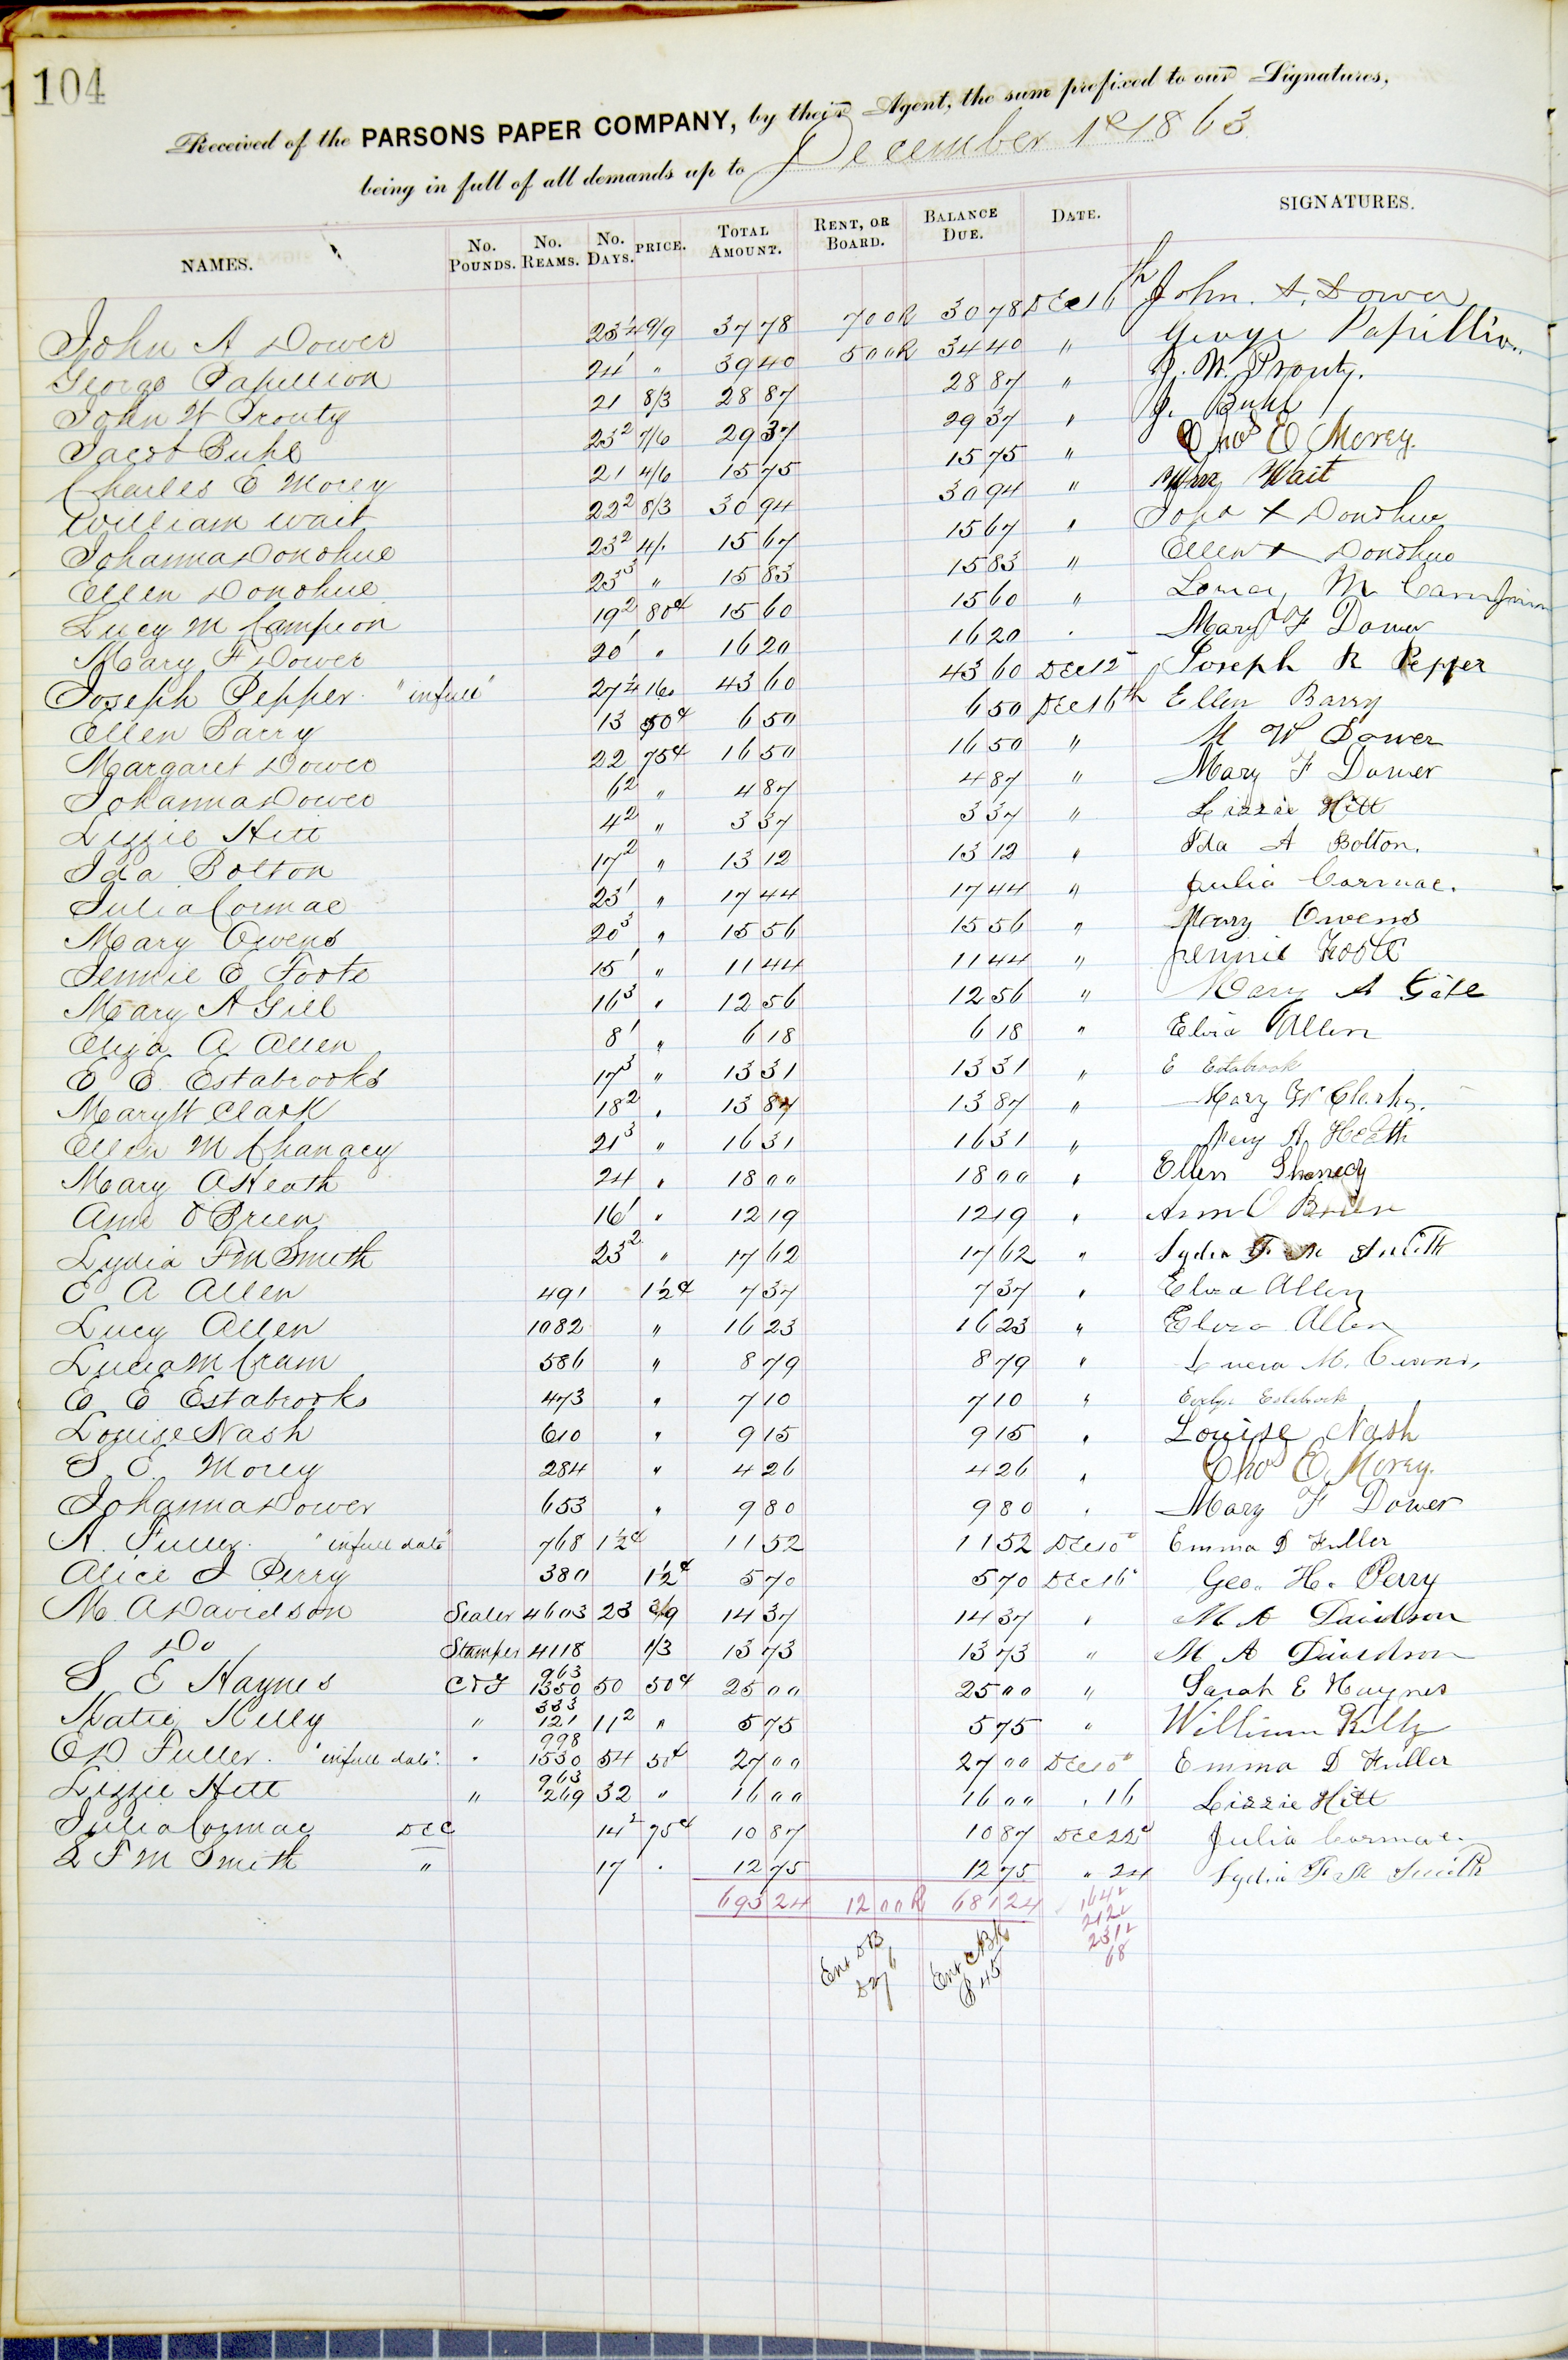 104
Received of the PARSONS PAPER COMPANY, by their Agent, the sum prefixed to our Signatures,
being in full of all demands up to December 1st 1863
NAMES. No. POUNDS. No. REAMS. No. DAYS. PRICE. TOTAL AMOUNT. RENT, OR BOARD. BALANCE DUE. DATE. SIGNATURES.
John A Dower 23¼ 9/9 37 78 7 00 R 30 78 Dec 16th John. A. Dower
George Papillion 24¹ " 39 40 5 00 R 34 40 " George Papillion
John W Prouty 21 8/3 28 87 28 87 " J. W. Prouty.
Jacob Buhl 23² 7/6 29 37 29 37 " J. Buhl
Charles E Morey 21 4/6 15 75 15 75 " Chas E Morey.
William Wait 22² 8/3 30 94 30 94 " Wm Wait
Johanna Donohue 23² 4/. 15 67 15 67 " Joha X Donohue
Ellen Donohue 23³ " 15 83 15 83 " Ellen X Donohue
Lucy M Campion 19² 80¢ 15 60 15 60 "
Mary F Dower 20¹ " 16 20 16 20 " Mary F Dower
Joseph Pepper. "infull" 27¼ 16. 43 60 43 60 Dec 12 Joseph R Pepper
Ellen Barry 13 50¢ 6 50 6 50 Dec 16th Ellen Barry
Margaret Dower 22 75¢ 16 50 16 50 " M W Dower
Johanna Dower 6² " 4 87 4 87 " Mary F Dower
Lizzie Hitt 4² " 3 37 3 37 " Lizzie Hitt
Ida Bolton 17² " 13 12 13 12 " Ida A Bolton.
Julia Cormac 23¹ " 17 44 17 44 " Julia Cormac.
Mary Owens 20³ " 15 56 15 56 " Mary Owens
Jennie E Foote 15¹ " 11 44 11 44 " Jennie Foote
Mary A Gill 16³ " 12 56 12 56 " Mary A Gill
Eliza A Allen 8¹ " 6 18 6 18 " Eliza Allen
E E. Estabrooks 17³ " 13 31 13 31 " E Estabrook
Mary W Clark 18² " 13 87 13 87 " Mary W Clark.
Ellen M Chanacy 21³ " 16 31 16 31 " Mary A Heath
Mary A Heath 24 " 18 00 18 00 " Ellen Shanecy
Ann O Brien 16¹ " 12 19 12 19 " Ann O Brien
Lydia F M Smith 23² " 17 62 17 62 " Lydia F M Smith
E A Allen 491 1½¢ 7 37 7 37 " Eliza Allen
Lucy Allen 1082 " 16 23 16 23 " Eliza Allen
Lucia M Cram 586 " 8 79 8 79 "
E E Estabrooks 473 " 7 10 7 10 " Estabrook
Louise Nash 610 " 9 15 9 15 " Louise Nash
S E Morey 284 " 4 26 4 26 " Chas E. Morey.
Johanna Dower 653 " 9 80 9 80 " Mary F Dower
A. Fuller. "infull date" 768 1½¢ 11 52 11 52 Dec 10" Emma D Fuller
Alice J Perry 380 1½¢ 5 70 5 70 Dec 16" Geo. H. Perry
M. A Davidson Sealer 4603 23 3/9 14 37 14 37 " M A Davidson
Do Stamper 4118 1/3 13 73 13 73 " M A Davidson
S E Haynes C & F 963 1350 50 50¢ 25 00 25 00 " Sarah E Haynes
Katie Killy " 333 121 11² " 5 75 5 75 " William Killy
E D Fuller. "infull date". " 998 1530 54 50¢ 27 00 27 00 Dec 10" Emma D Fuller
Lizzie Hitt " 963 269 32 " 16 00 16 00 " 16 Lizzie Hitt
Julia Cormac Dec 14² 75¢ 10 87 10 87 Dec 22d Julia Cormac.
L F M Smith " 17 " 12 75 12 75 " 24 Lydia F M Smith
693 24 12 00 R 681 24
68
Ent
Ent C Bk